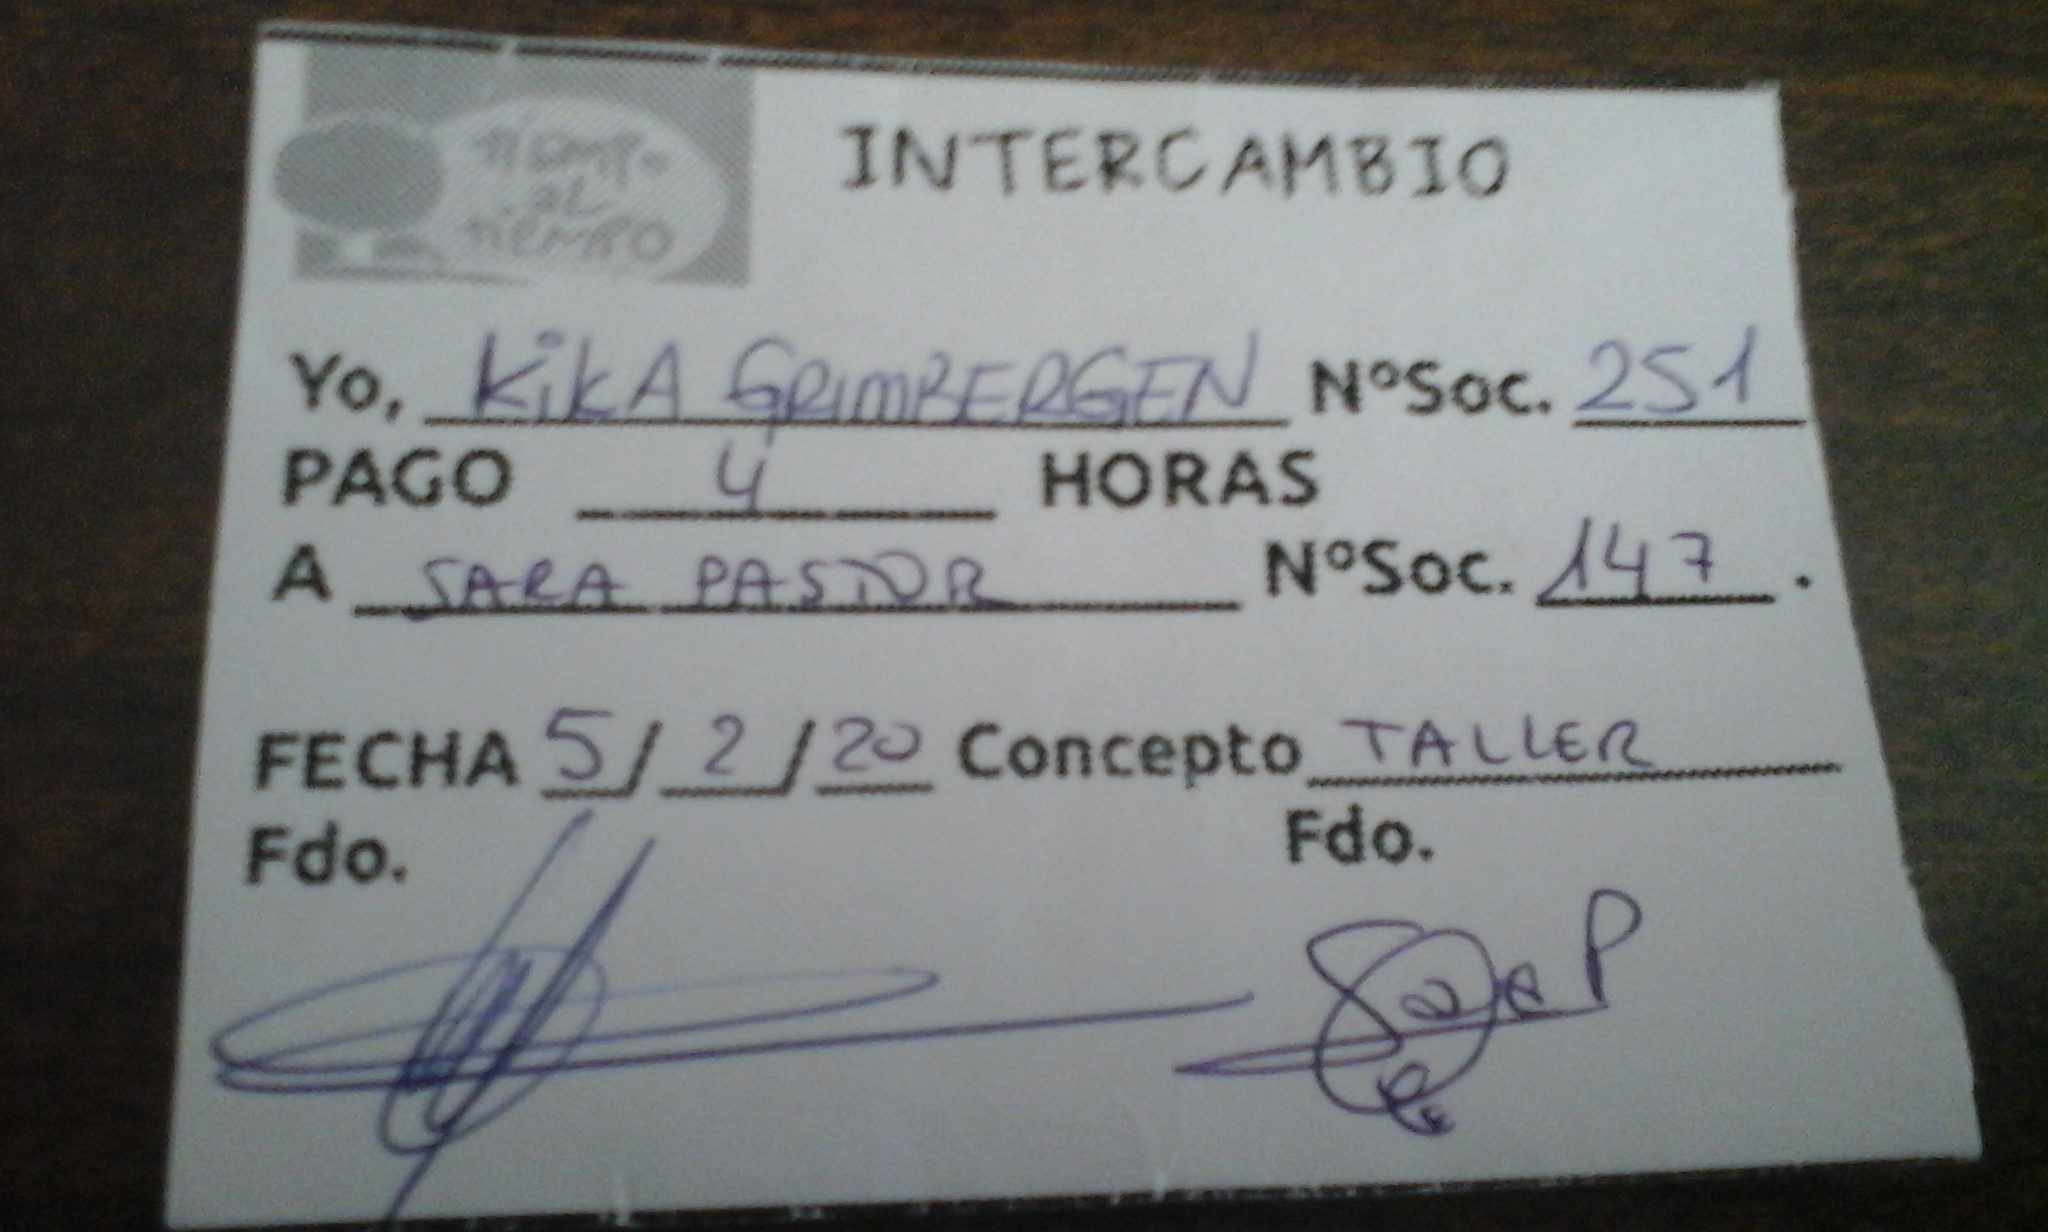 TIEMPO
AL
TIEMPO
INTERCAMBIO
Yo, KiKA GRIMBERGEN NºSoc. 251
PAGO 4 HORAS
A SARA PASTOR NºSoc. 147 .
FECHA 5/ 2 / 20 Concepto TALLER
Fdo. Fdo.